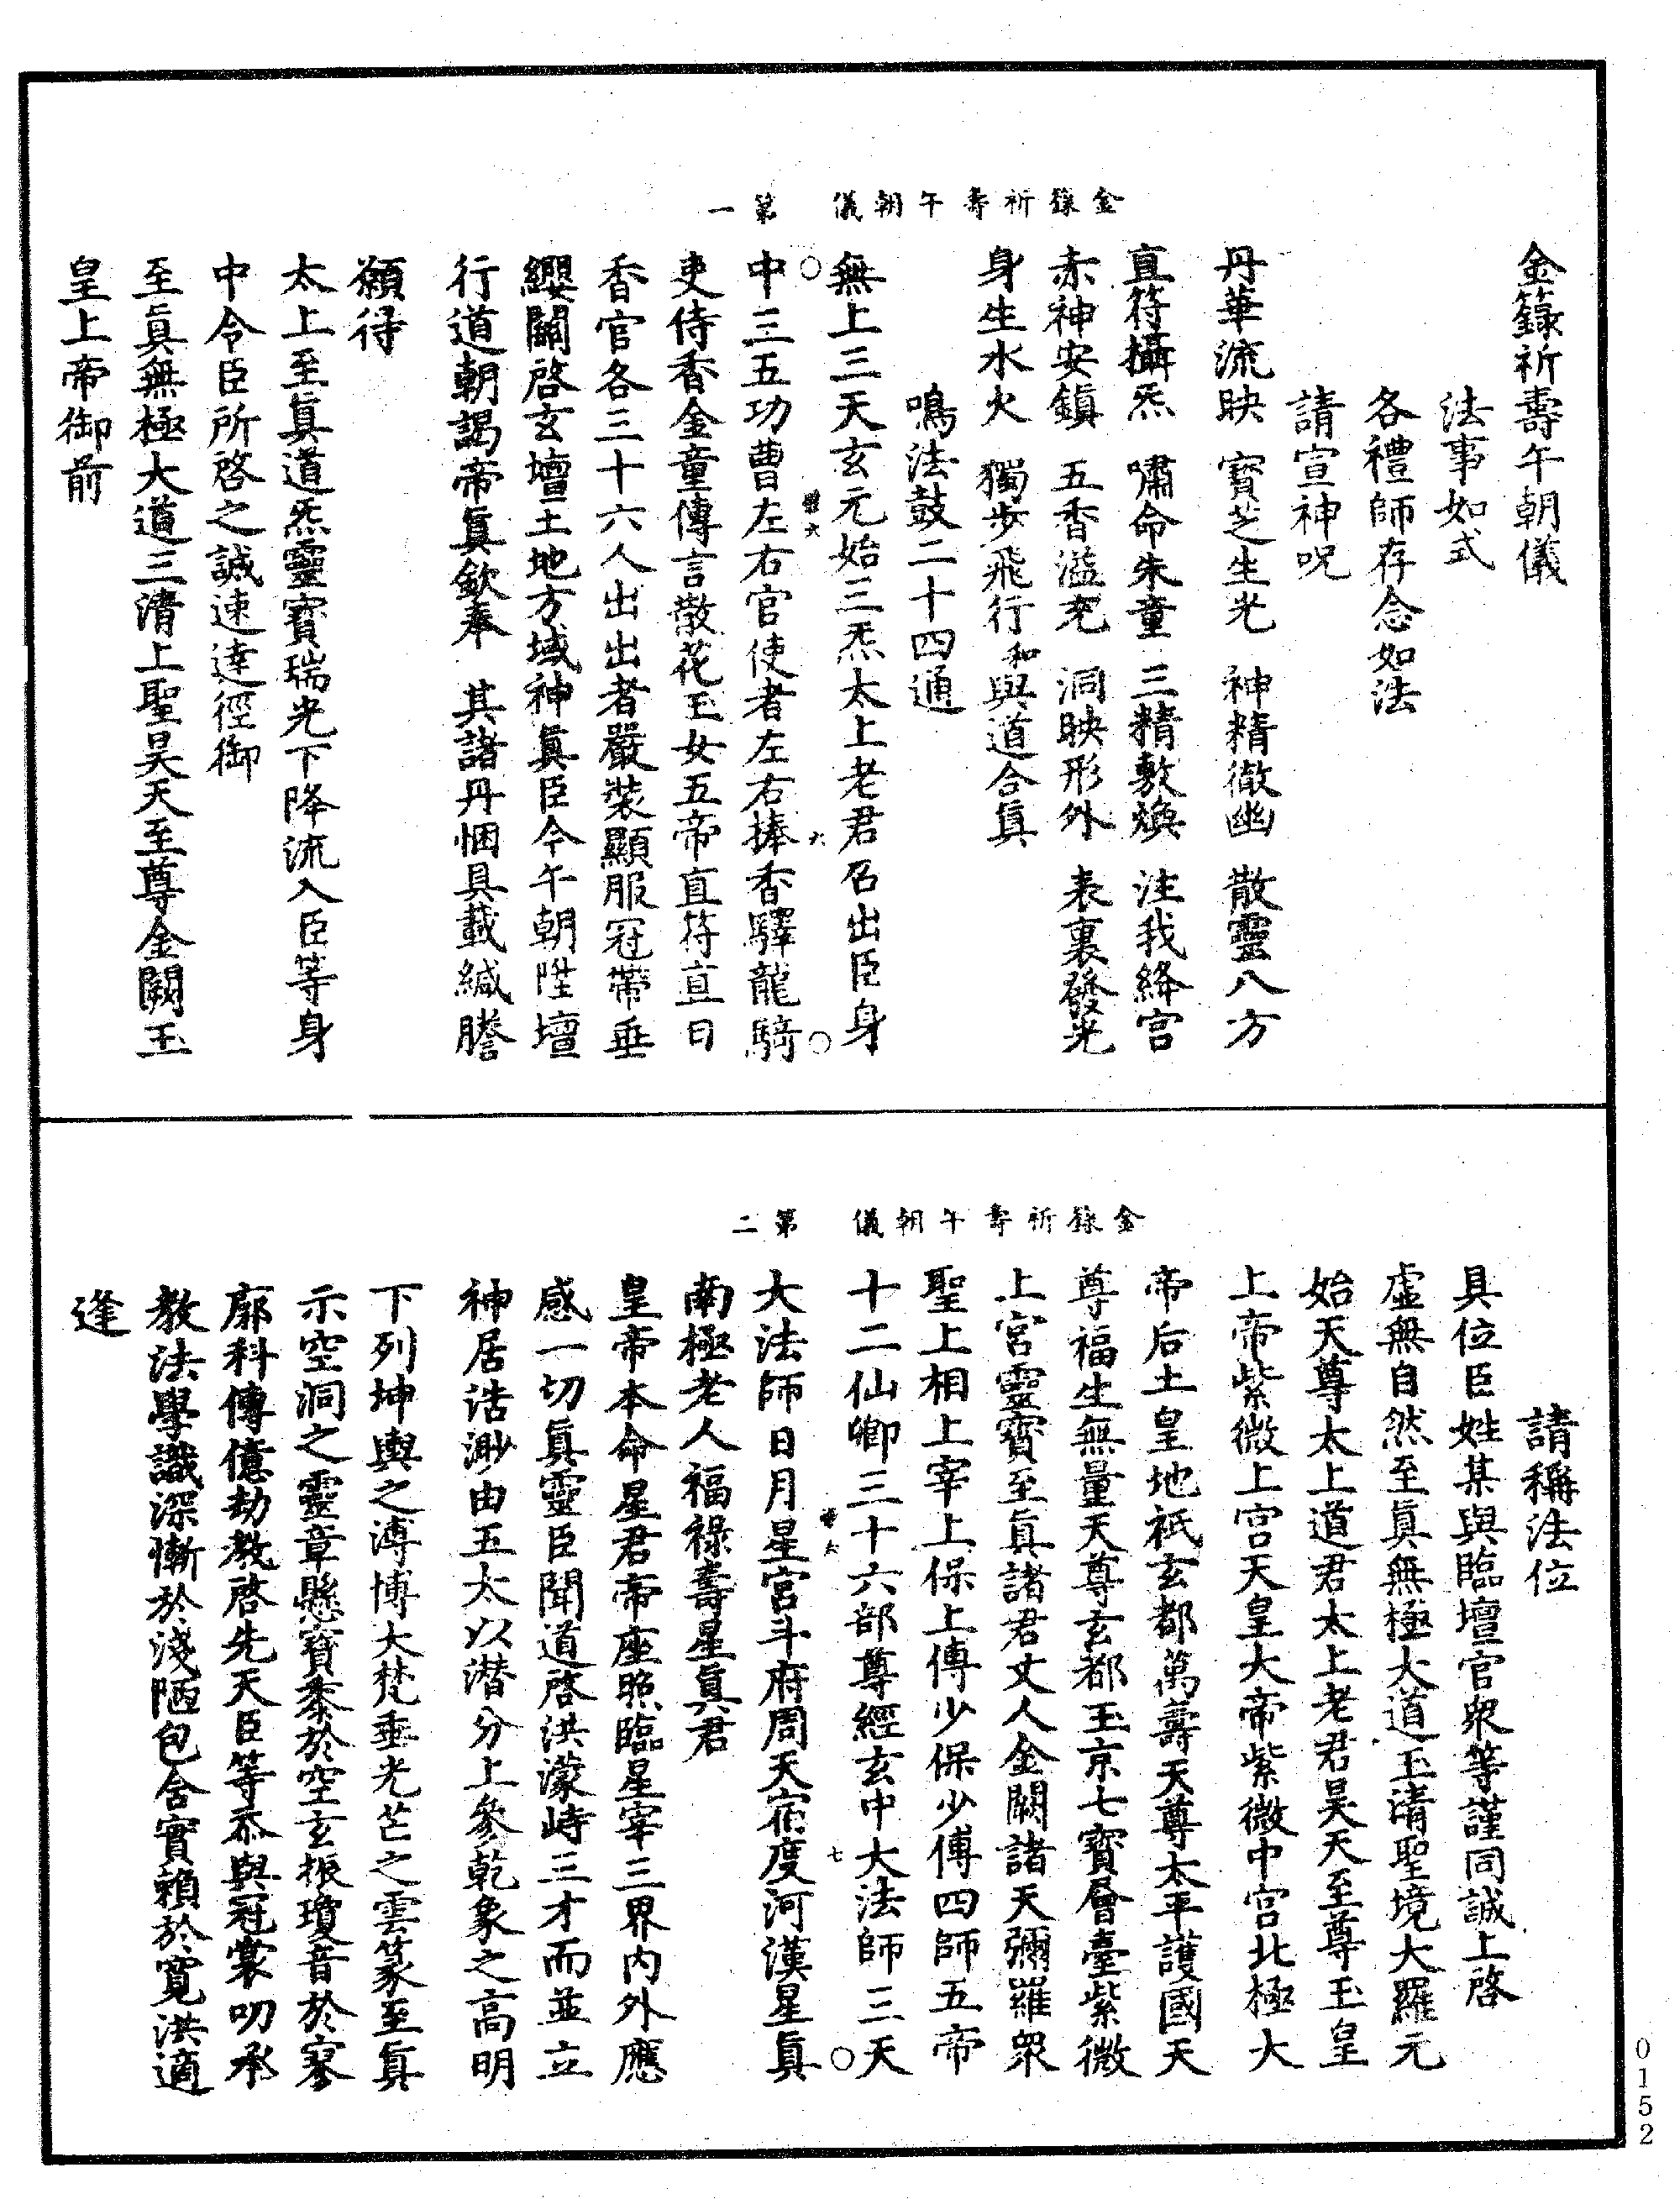 金籙祈壽午朝儀
法事如式
各禮師存念如法
請宣神呪
丹華流映　寶芝生光　神精徹幽　散靈八方
直符攝炁　嘯命朱童　三精敷煥　注我絳宮
赤神安鎮　五香溢充　洞映形外　表裏發光
身生水火　獨步飛行　和與道合眞
鳴法鼓二十四通
金籙祈壽午朝儀　第一
無上三天玄元始三炁太上老君召出臣身
中三五功曹左右官使者左右捧香驛龍騎
吏侍香金童傳言散花玉女五帝直符直日
香官各三十六人出出者嚴裝顯服冠帶垂
纓關啓玄壇土地方域神眞臣今午朝陞壇
行道朝謁帝眞欽奉　其諸丹悃具載緘謄
願得
太上至眞道炁靈寶瑞光下降流入臣等身
中令臣所啓之誠速達徑御
至眞無極大道三清上聖昊天至尊金闕玉
皇上帝御前
六
請稱法位
具位臣姓某與臨壇官衆等謹同誠上啓
虛無自然至眞無極大道玉清聖境大羅元
始天尊太上道君太上老君昊天至尊玉皇
上帝紫微上宮天皇大帝紫微中宮北極大
帝后土皇地祇玄都萬壽天尊太平護國天
尊福生無量天尊玄都玉京七寶層臺紫微
上宮靈寶至眞諸君丈人金闕諸天彌羅衆
聖上相上宰上保上傅少保少傅四師五帝
十二仙卿三十六部尊經玄中大法師三天
金籙祈壽午朝儀　第二
大法師日月星宮斗府周天宿度河漢星眞
南極老人福祿壽星眞君
皇帝本命星君帝座照臨星宰三界內外應
感一切眞靈臣聞道啓洪濛峙三才而並立
神居浩渺由五太以潛分上參乾象之高明
下列坤輿之溥博大梵垂光芒之雲篆至眞
示空洞之靈章懸寶黍於空玄振瓊音於寥
廓科傳億劫教啓先天臣等忝與冠裳叨承
教法學識深慚於淺陋包含實賴於寬洪適
逢
七
0152